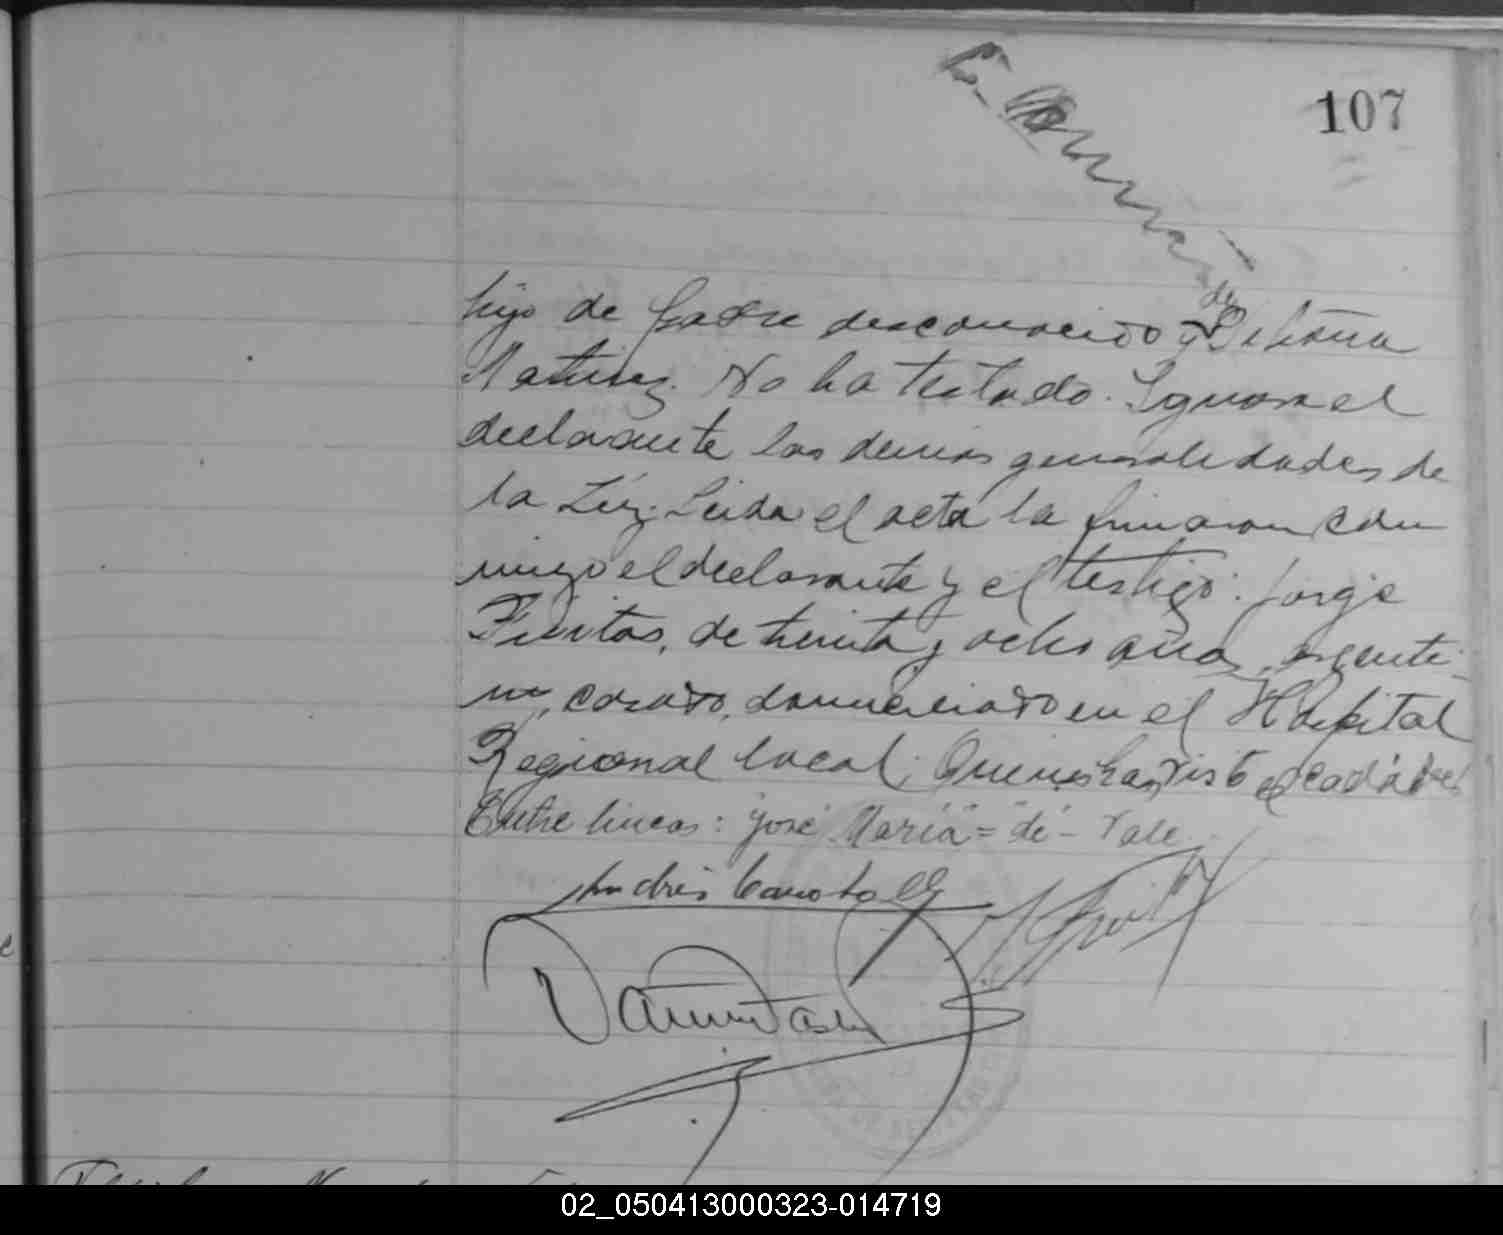 107
hijo de padre desconocido y de
Martinez. No ha testado. Ignora el
declarante las demas generalidades de
la Léy. Leida el acta la firmaron con
migo el declarante y el testigo: Jorge
Freitas, de treinta y ocho años, argenti-
no, casado, domiciliado en el Hospital
Regional local. Quienes han visto el cadáver
Entre lineas: "José Maria" = "de" - Vale.
Andrés
02_050413000323-014719